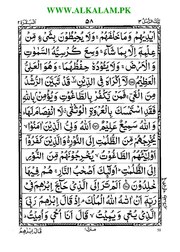 WWW.ALKALAM.PK
٥٨
اَيْدِيْهِمْ وَمَا خَلْفَهُمْ وَلَا يُحِيْطُوْنَ بِشَيْءٍ مِّنْ
عِلْمِهٖٓ اِلَّا بِمَا شَآءَ وَسِعَ كُرْسِيُّهُ السَّمٰوٰتِ
وَالْاَرْضَ وَلَا يَـُٔوْدُهٗ حِفْظُهُمَا وَهُوَ الْعَلِيُّ
الْعَظِيْمُ لَآ اِكْرَاهَ فِي الدِّيْنِ قَدْ تَّبَيَّنَ الرُّشْدُ
مِنَ الْغَيِّ فَمَنْ يَّكْفُرْ بِالطَّاغُوْتِ وَيُؤْمِنْۢ بِاللّٰهِ
فَقَدِ اسْتَمْسَكَ بِالْعُرْوَةِ الْوُثْقٰى لَا انْفِصَامَ لَهَا
وَاللّٰهُ سَمِيْعٌ عَلِيْمٌ اَللّٰهُ وَلِيُّ الَّذِيْنَ اٰمَنُوْا يُخْرِجُهُمْ
مِّنَ الظُّلُمٰتِ اِلَى النُّوْرِ وَالَّذِيْنَ كَفَرُوْٓا
اَوْلِيٰٓـُٔهُمُ الطَّاغُوْتُ يُخْرِجُوْنَهُمْ مِّنَ النُّوْرِ
اِلَى الظُّلُمٰتِ اُولٰٓئِكَ اَصْحٰبُ النَّارِ هُمْ فِيْهَا
خٰلِدُوْنَ اَلَمْ تَرَ اِلَى الَّذِيْ حَآجَّ اِبْرٰهٖمَ فِيْ
رَبِّهٖٓ اَنْ اٰتٰىهُ اللّٰهُ الْمُلْكَ اِذْ قَالَ اِبْرٰهٖمُ رَبِّيَ
الَّذِيْ يُحْيٖ وَيُمِيْتُ قَالَ اَنَا اُحْيٖ وَاُمِيْتُ